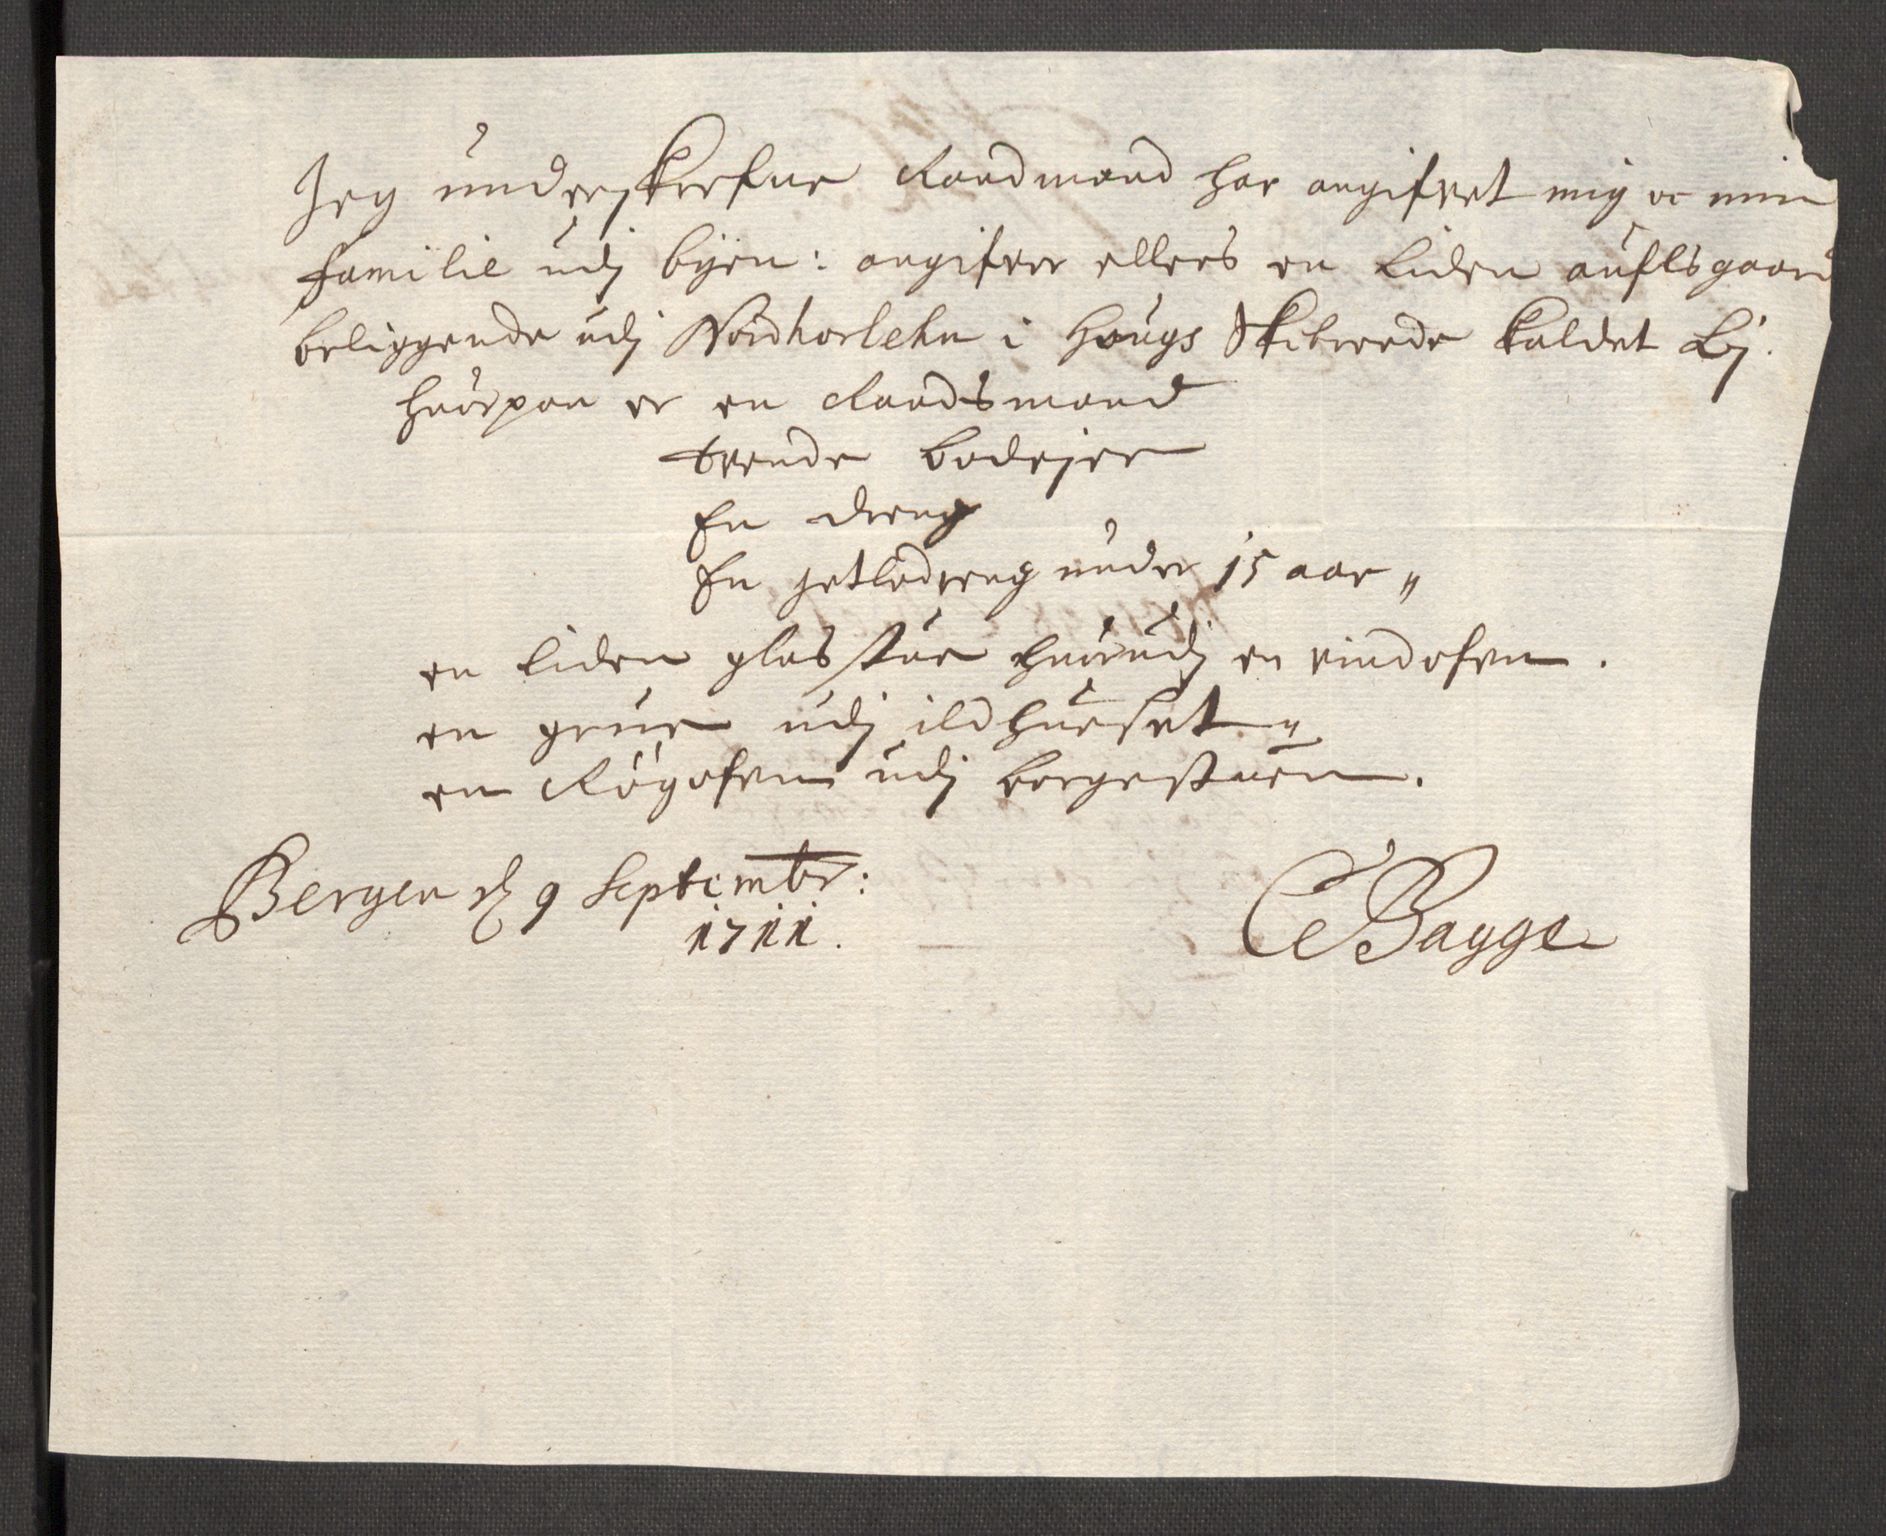 Jeg underskrefne Raadmand har angifvet mig oc min
familie udj byen: angifver ellers en liden aufls gaard
beliggende udj Nordhorlehn i Hougs Skibrede kaldet Lj.
huorpaa er en Raadsmand
trende bodejer
En dreng
En gietledreng under 15 aar„
en liden glasstue huorudj en vindofen.
en grue udj ildhueset„
en Røgofen udj borgestuen.
Bergen d 9 Septembr:
1711.
CBagge